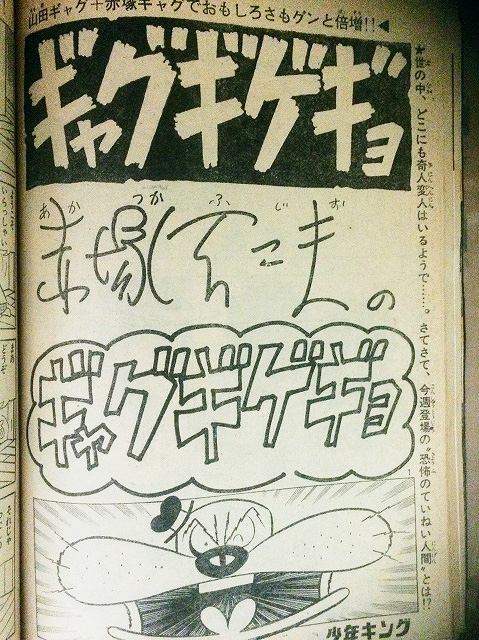 山田ギャグ+赤塚ギャグでおもしろさもグンと倍増!!◀
ギャグギゲギョ
★世の中、どこにも奇人変人はいるようで……。さてさて、今週登場の“恐怖のていねい人間”とは!?
あかつかふじお
赤塚不二夫の
ギャグギゲギョ
少年キング
いらっしゃい
まあ
どうぞ
それじゃ